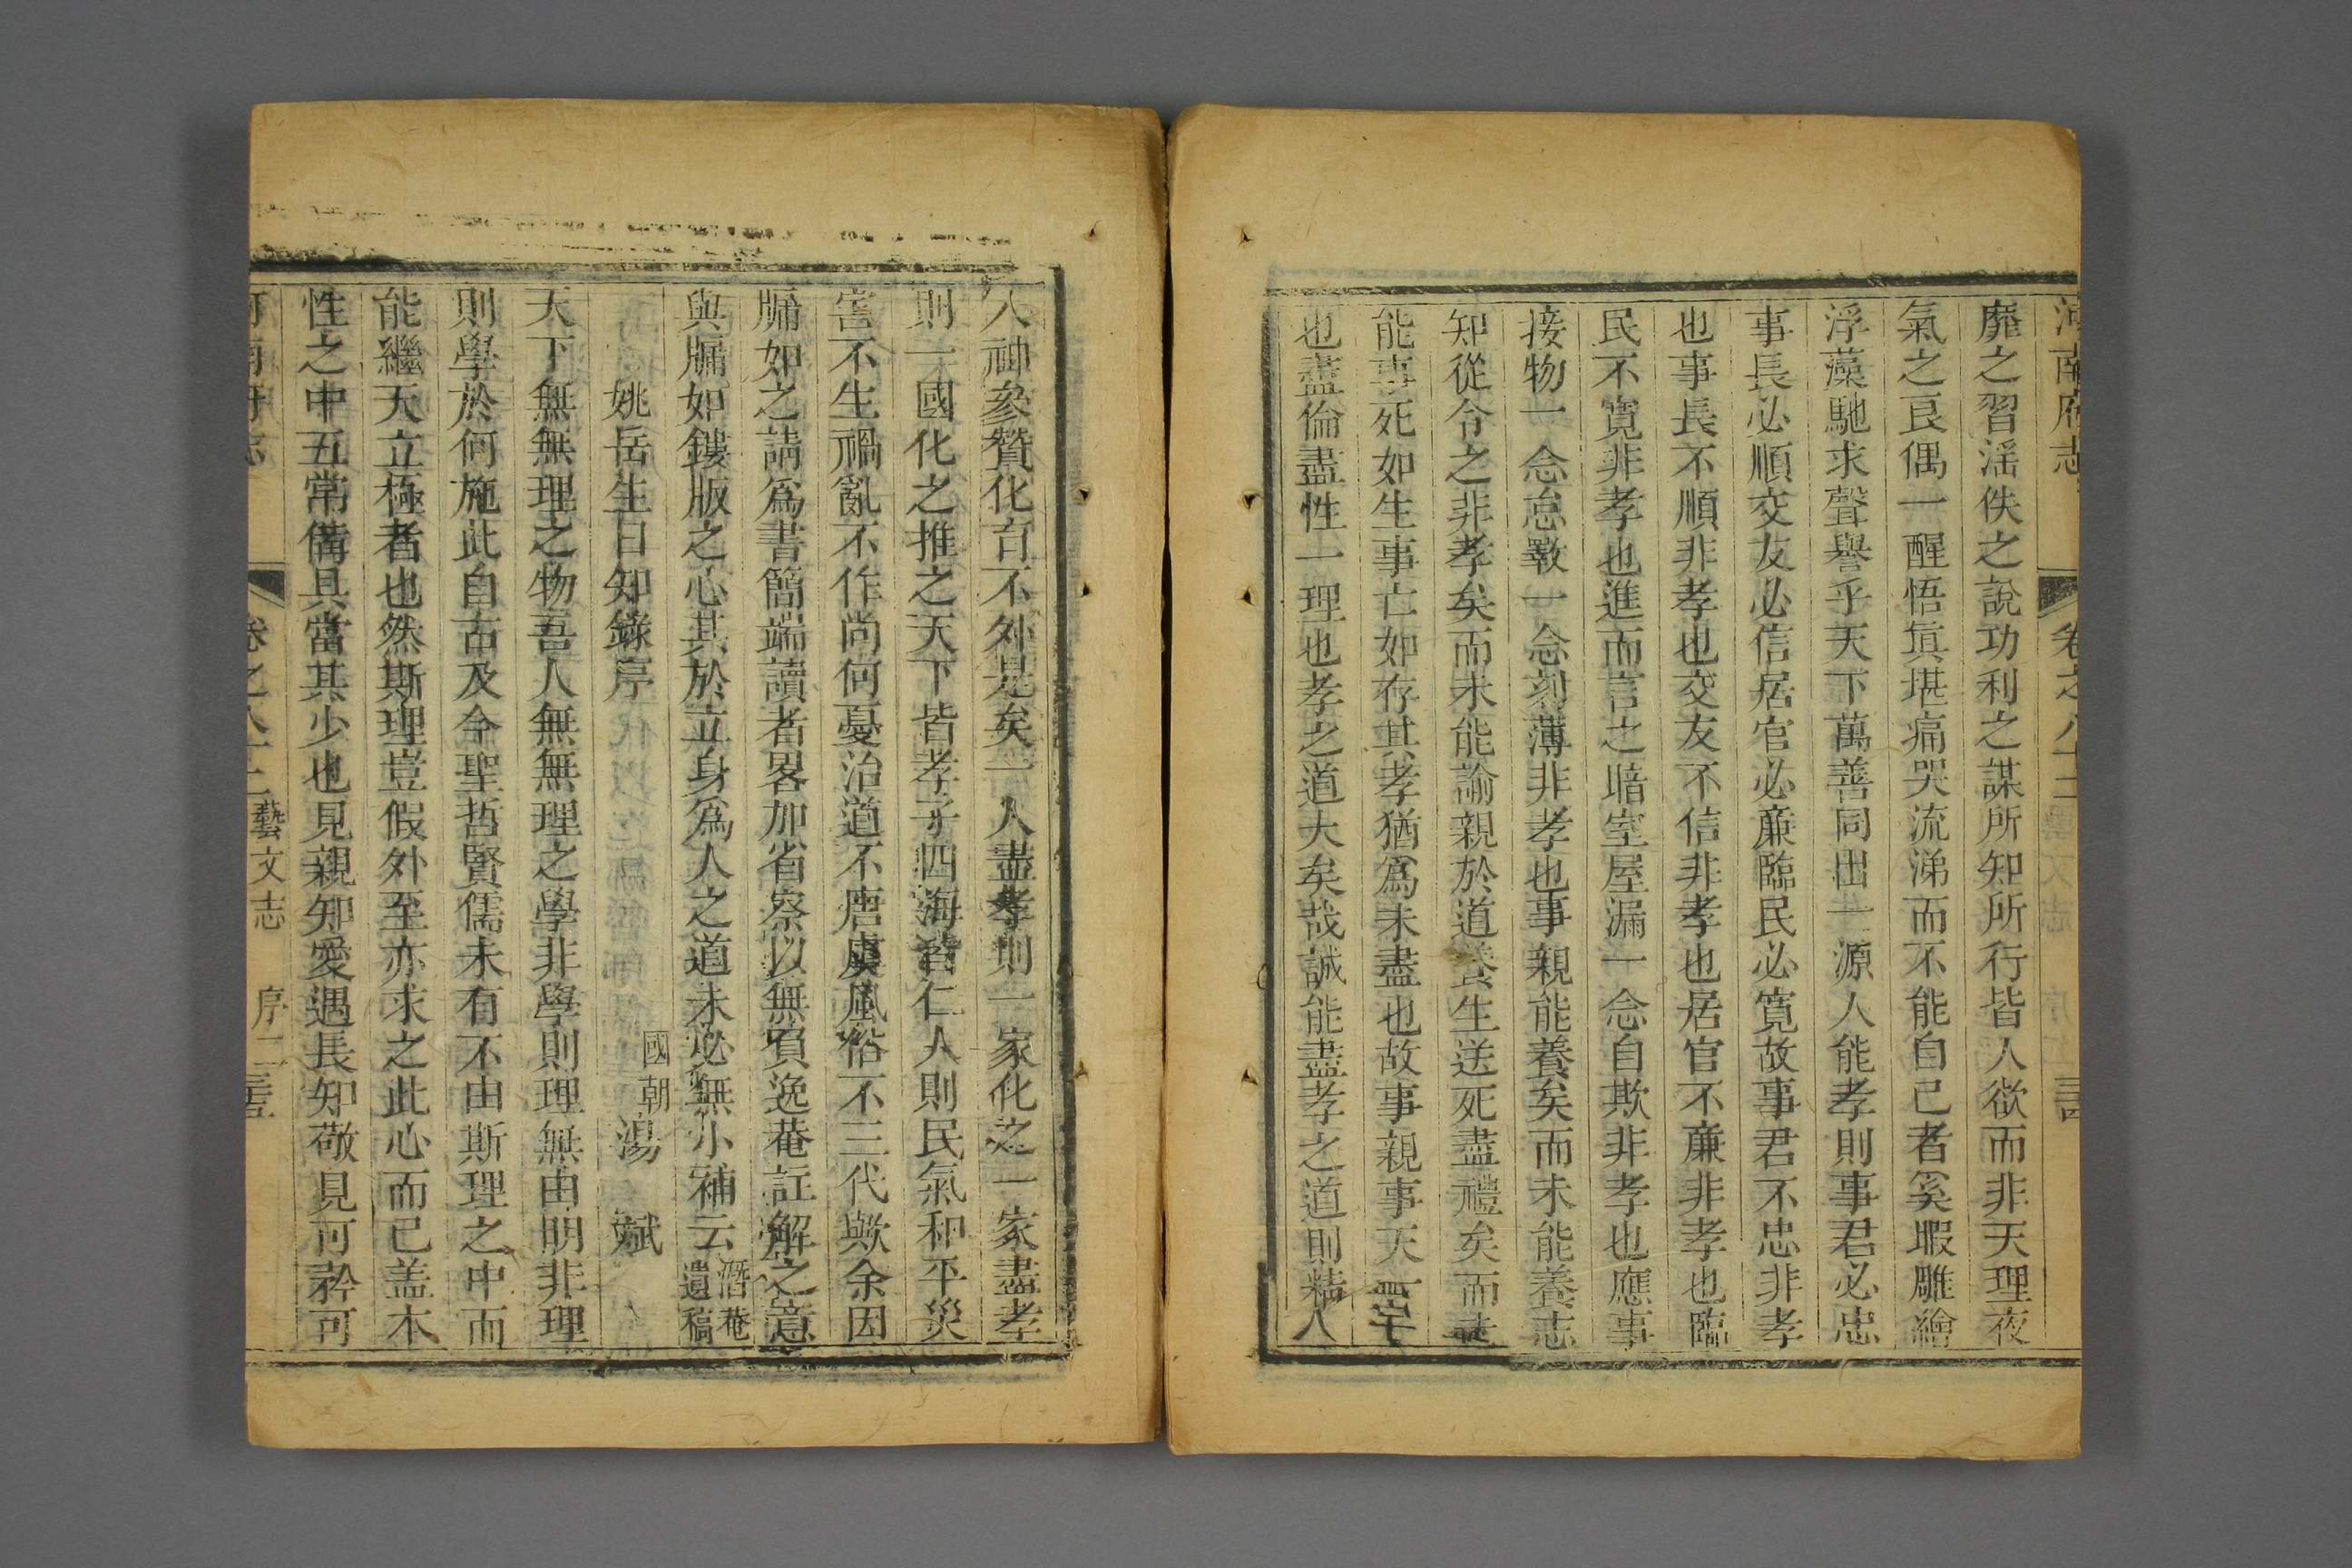 河南府志 卷之八十二
靡之習滛佚之說功利之謀所知所行皆人欲而非天理夜
氣之良偶一醒悟眞堪痛哭流涕而不能自已者奚暇雕繪
浮藻馳求聲譽乎天下萬善同出一源人能孝則事君必忠
事長必順交友必信居官必亷臨民必寛故事君不忠非孝
也事長不順非孝也交友不信非孝也居官不亷非孝也臨
民不寛非孝也進而言之暗室屋漏一念自欺非孝也應事
接物一念怠斁一念刻薄非孝也事親能養矣而未能養志
知從令之非孝矣而未能諭親於道養生送死盡禮矣而
能事死如生事亡如存其孝猶爲未盡也故事親事天
也盡倫盡性一理也孝之道大矣哉誠能盡孝之道則精
人神參贊化育不外是矣一人盡孝則一家化之一家盡孝
則一國化之推之天下皆孝子四海皆仁人則民氣和平災
害不生禍亂不作尚何憂治道不唐虞風俗不三代歟余因
牖如之請爲書簡端讀者畧加省察以無負逸菴註解之意
與牖如鏤版之心其於立身爲人之道未必無小補云潛菴遺稿
姚岳生日知錄序 國朝湯斌
天下無無理之物吾人無無理之學非學則理無由明非理
則學於何施此自古及今聖哲賢儒未有不由斯理之中而
能繼天立極者也然斯理豈假外至亦求之此心而已盖本
性之中五常備具當其少也見親知愛遇長知敬見可矜可
河南府志 卷之八十二 藝文志 序二